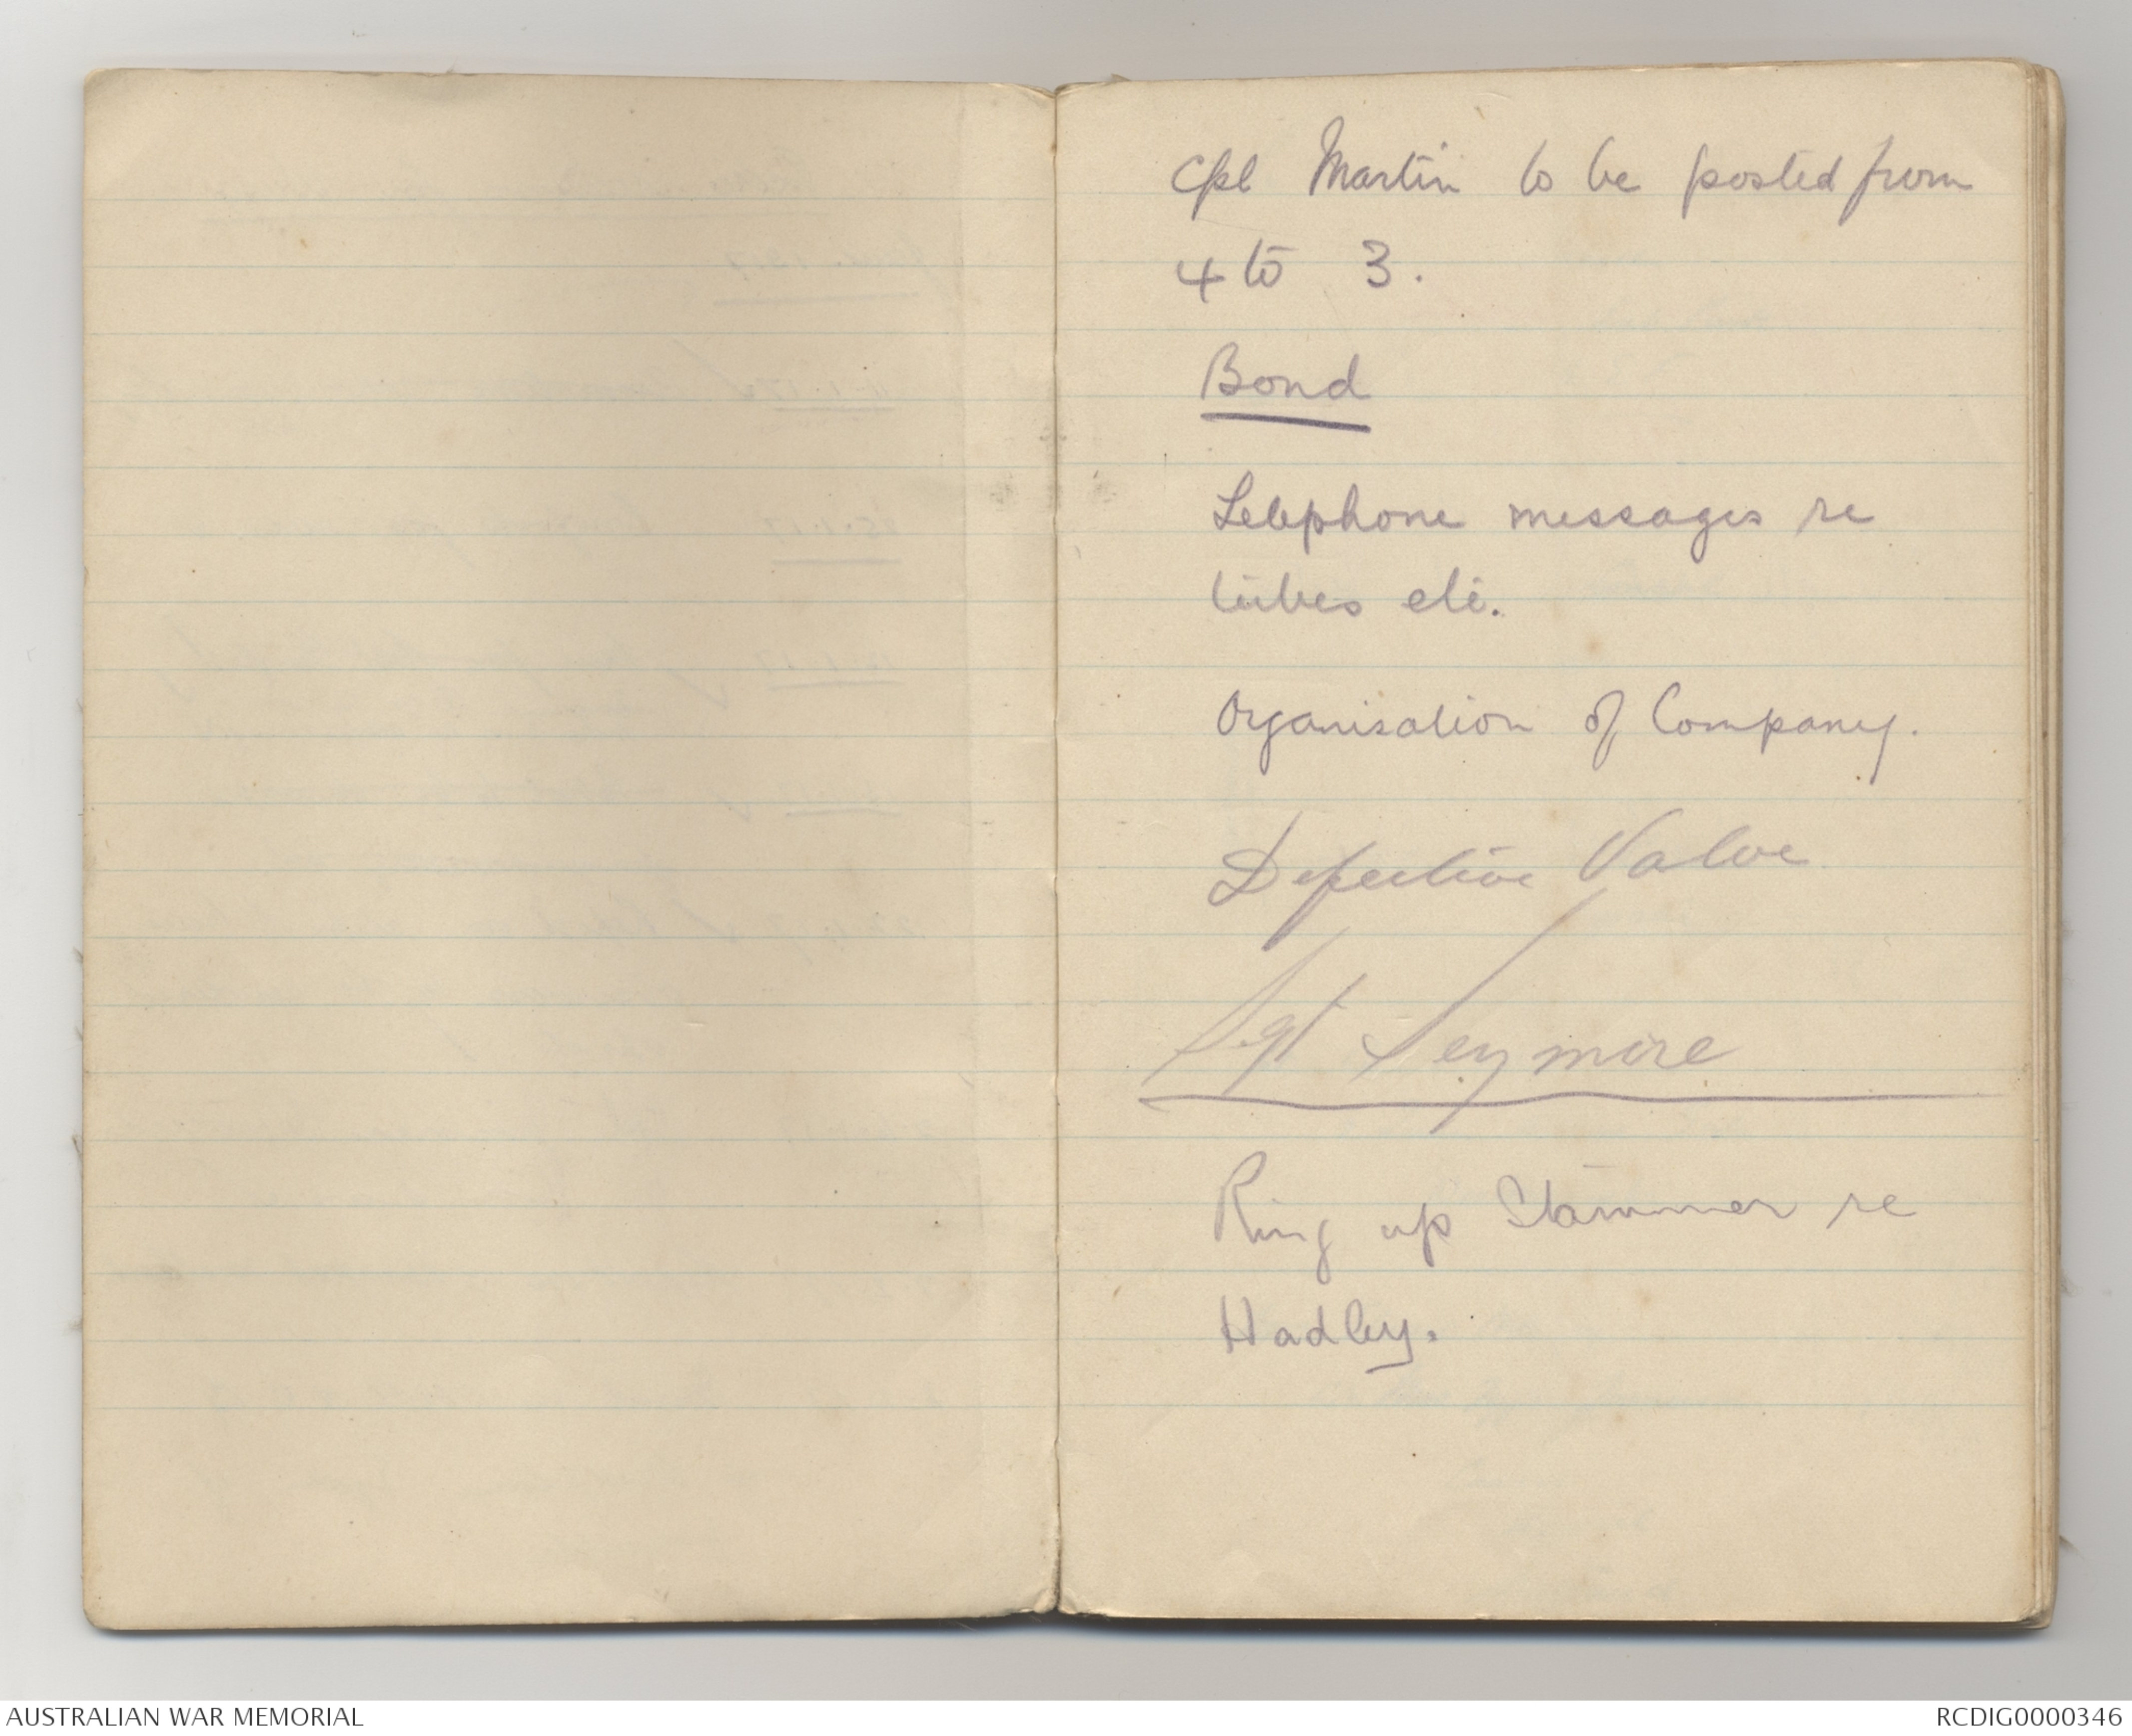 Cpl Martin to be posted from
4 to 3.
Bond
Telephone messages re
tubes etc.
Organisation of Company.
Defective Valve
Sgt Seymore
Ring up Stammer re
Hadley.
AUSTRALIAN WAR MEMORIAL
RCDIG0000346